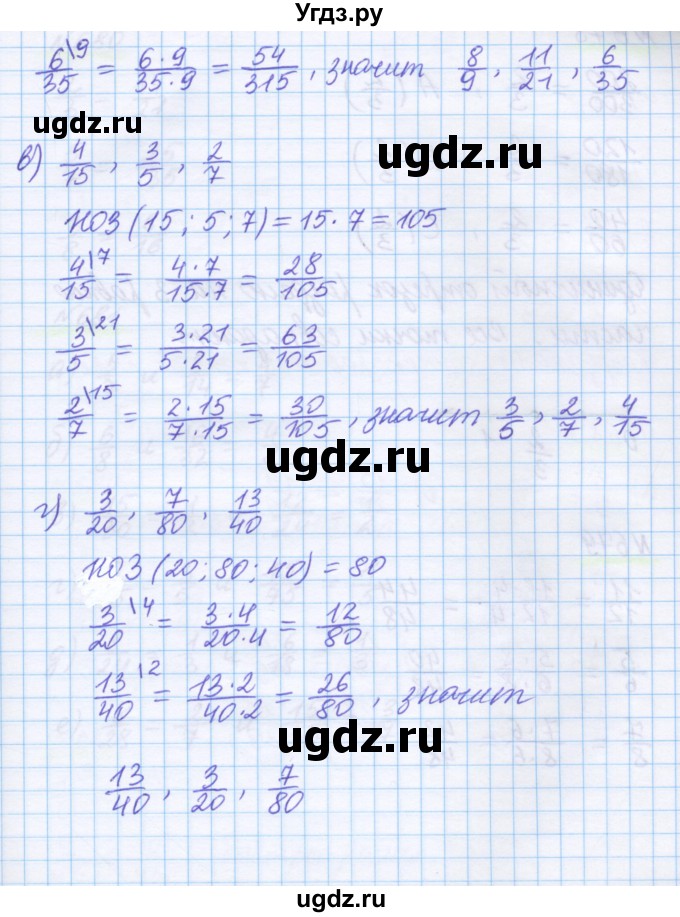 Угдз.ру
6\9/35 = 6·9/35·9 = 54/315, значит 8/9, 11/21, 6/35
ugdz.ru ugdz.ru
в) 4/15, 3/5, 2/7
НОЗ (15; 5; 7) = 15·7 = 105
4\7/15 = 4·7/15·7 = 28/105
3\21/5 = 3·21/5·21 = 63/105
2\15/7 = 2·15/7·15 = 30/105, значит 3/5, 2/7, 4/15
ugdz.ru
г) 3/20, 7/80, 13/40
НОЗ (20; 80; 40) = 80
3\4/20 = 3·4/20·4 = 12/80
13\2/40 = 13·2/40·2 = 26/80, значит
ugdz.ru
13/40, 3/20, 7/80
ugdz.ru